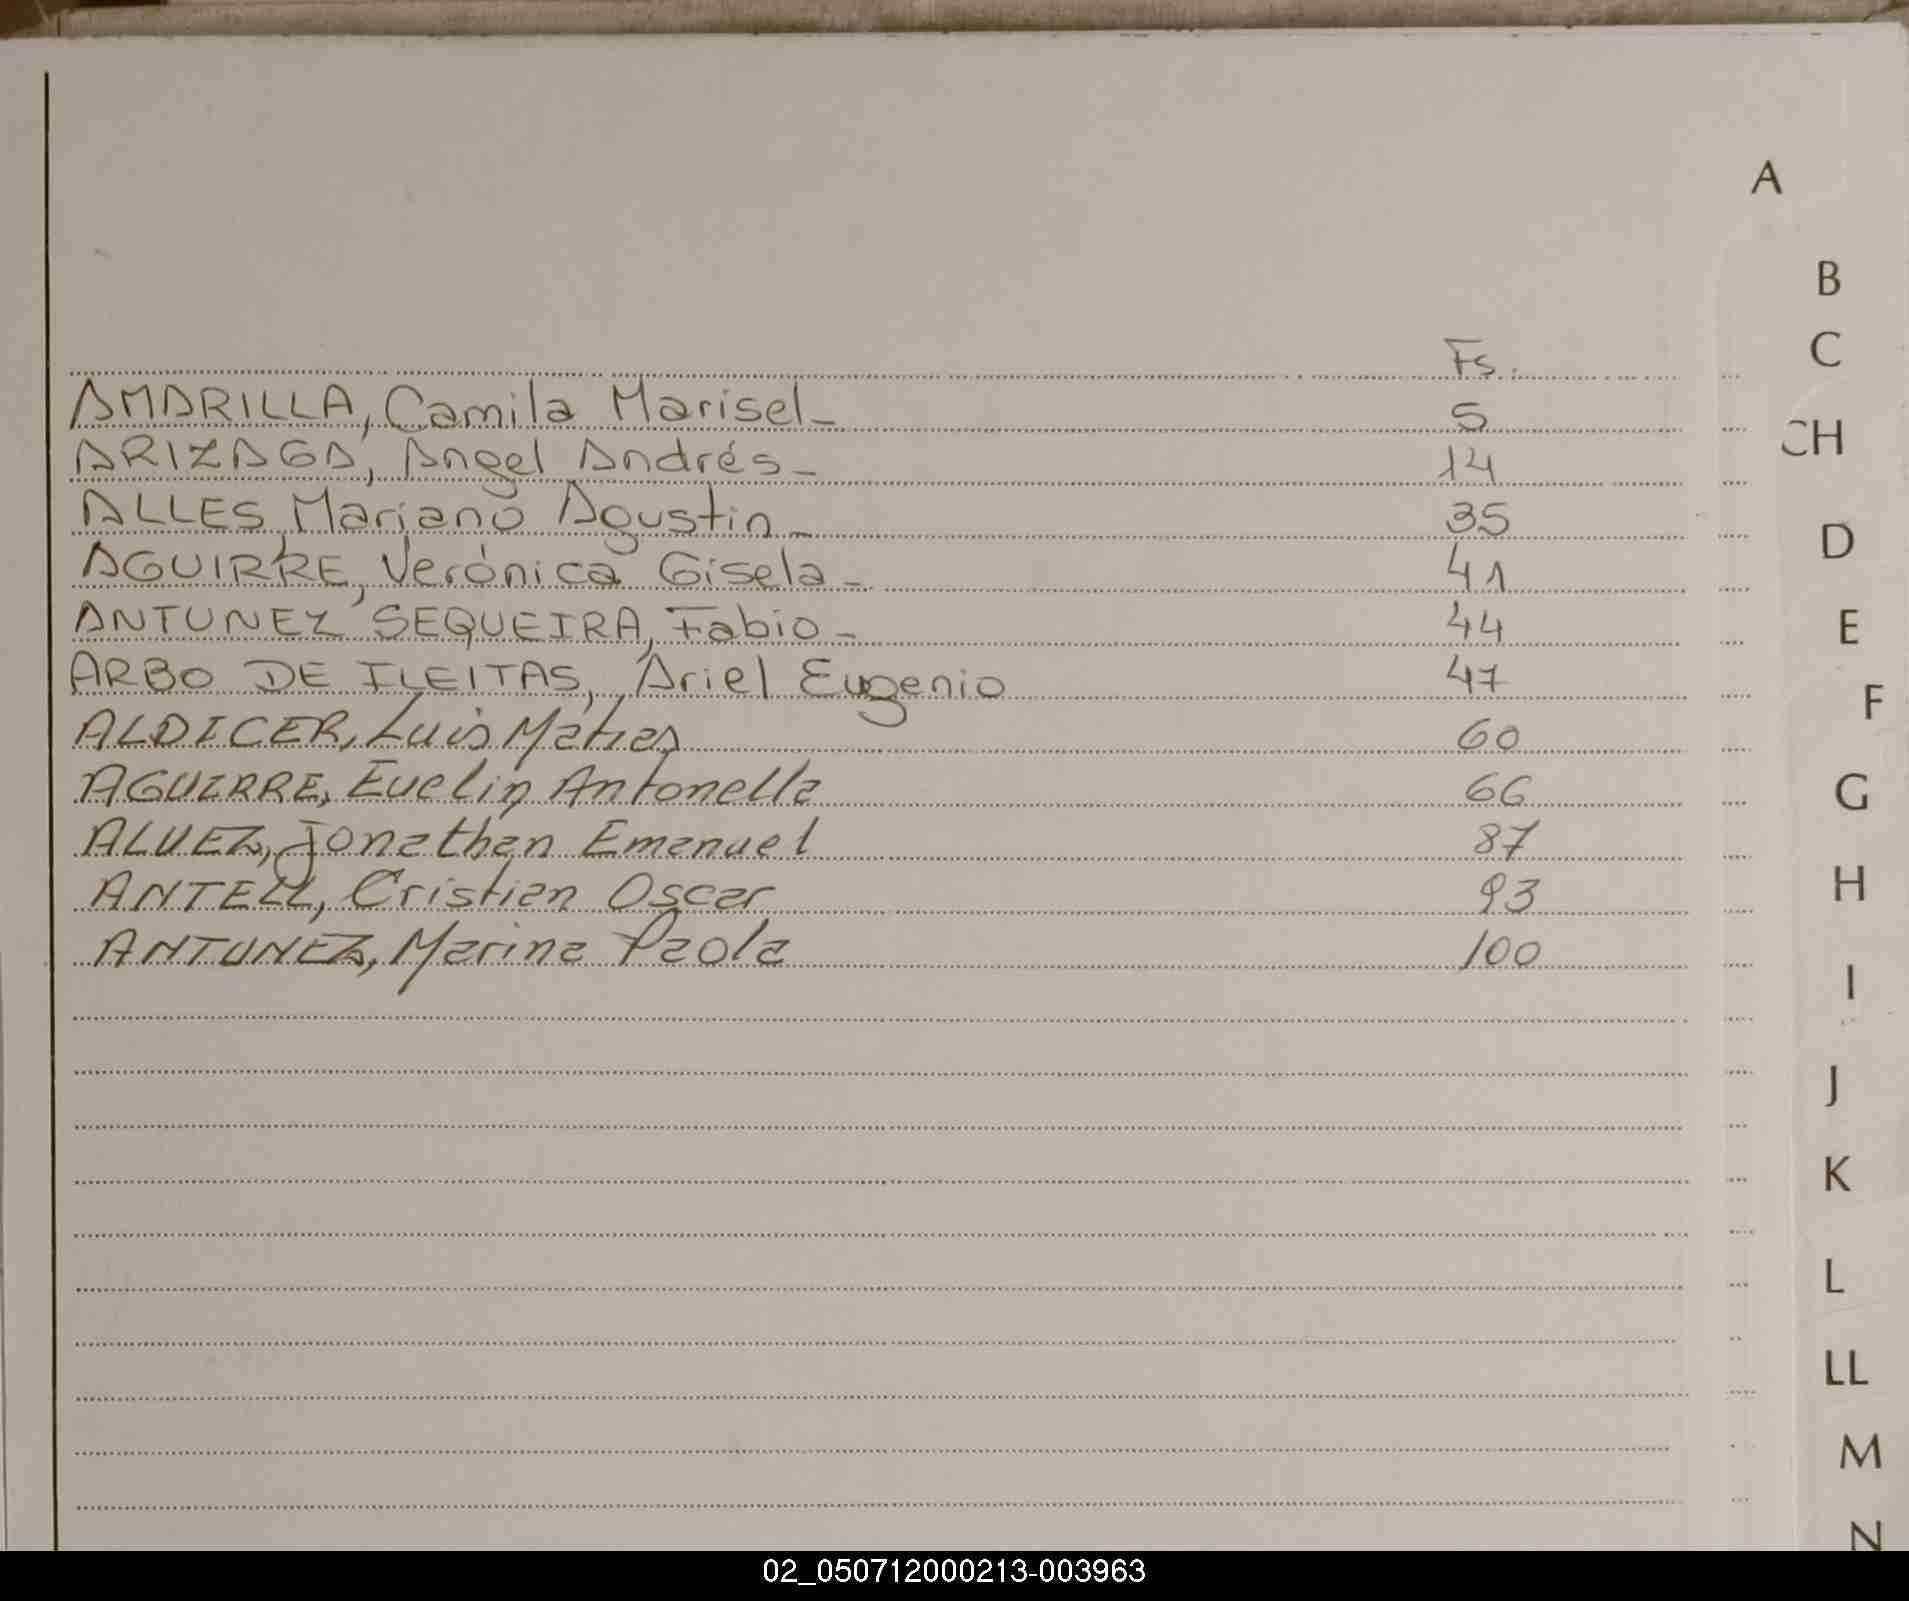 A
B
C
Fs.
AMARILLA, Camila Marisel - 5
CH
ARIZAGA, Angel Andrés - 14
ALLES Mariano Agustin - 35
D
AGUIRRE, Verónica Gisela - 41
ANTUNEZ SEQUEIRA, Fabio - 44
E
ARBO DE ILEITAS, Ariel Eugenio 47
F
ALDICER, Luis Matias 60
AGUIRRE, Evelin Antonella 66
G
ALVEZ, Jonathan Emanuel 87
H
ANTELL, Cristian Oscar 93
ANTUNEZ, Marina Paola 100
I
J
K
L
LL
M
N
02_050712000213-003963